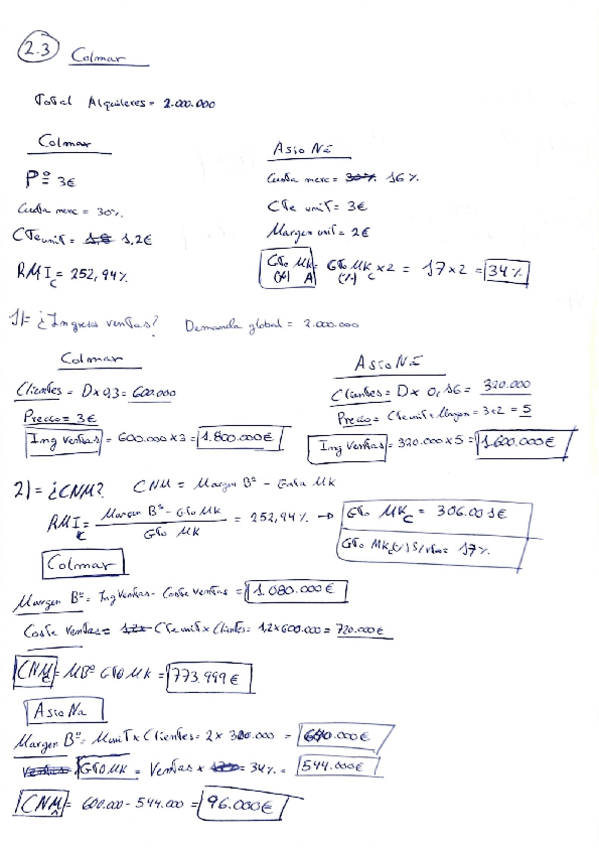 2.3 Colmar
Total Alquileres = 2.000.000
Colmar
Pº = 3€
Cuota merc = 30%
CTe unit = 1,8 1,2€
RMI C = 252,94%
Asio NE
Cuota merc = 30% 16%
CTe unit = 3€
Margen unit = 2€
GTo MK (%) A = GTo MK C (%) x2 = 17x2 = 34%
1) = ¿Ingreso ventas? Demanda global = 2.000.000
Colmar
Clientes = Dx0,3 = 600.000
Precio = 3€
Ing Ventas = 600.000x3 = 1.800.000€
Asio NE
Clientes = Dx 0,16 = 320.000
Precio = CTe unit + Margen = 3+2 = 5
Ing Ventas = 320.000x5 = 1.600.000€
2) = ¿CNM? CNM = Margen Bº - Gasto MK
RMI C = Margen Bº - GTo MK / GTo MK = 252,94% → GTo MK C = 306.001€
GTo MK C/ S/Vtas = 17%
Colmar
Margen Bº = Ing Ventas - Coste Ventas = 1.080.000€
Coste Ventas = 1,2x CTe unit x Clientes = 1,2x600.000 = 720.000€
CNM C = MBº GTO MK = 773.999€
Asio Na
Margen Bº = M unit x Clientes = 2 x 320.000 = 640.000€
Ventas GTO MK = Ventas x 34% = 544.000€
CNM A = 600.000 - 544.000 = 96.000€